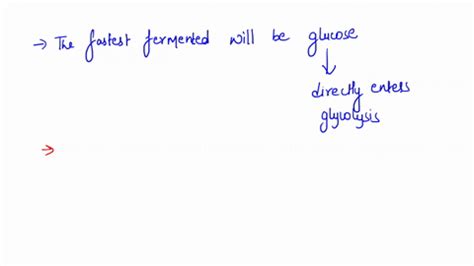 → The fastest fermented will be glucose
↓
directly enters
glycolysis
→